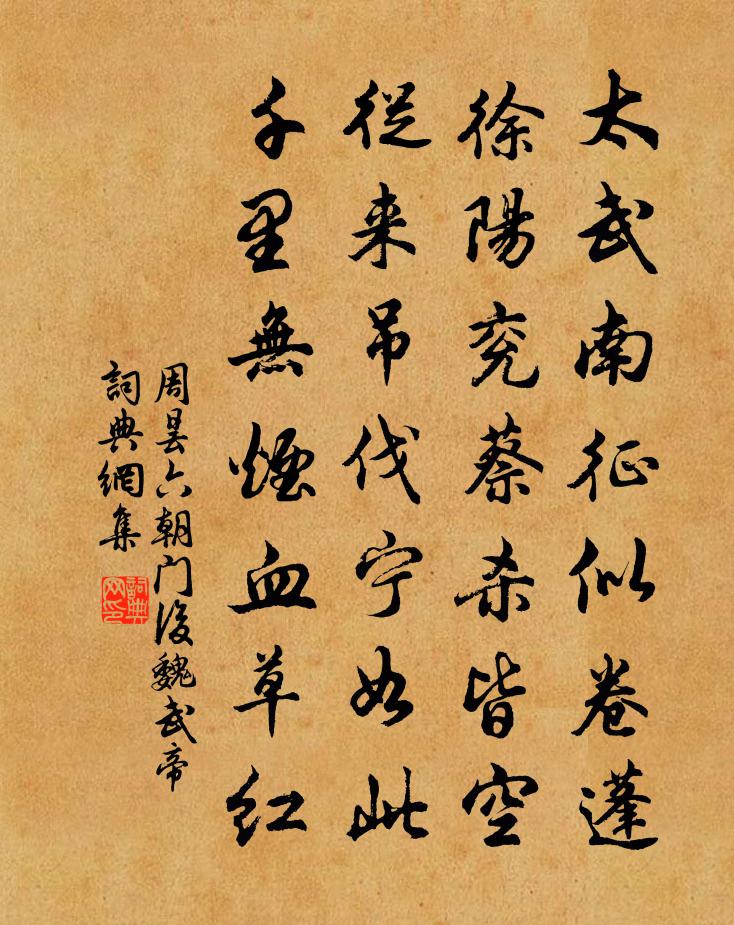 太武南征似卷蓬
徐陽兖蔡杀皆空
從来吊伐宁如此
千里無煙血草红
周曇六朝门後魏武帝
詞典網集
詞典网印